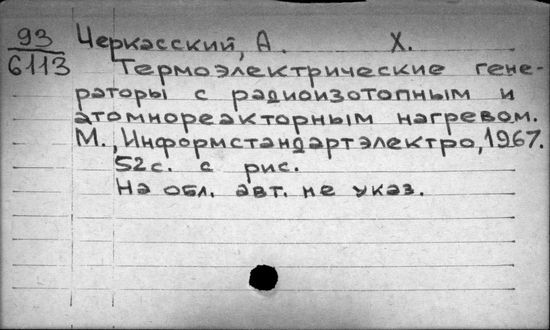 93
6113
Черкасский, А. Х.
Термоэлектрические гене-
раторы с радиоизотопным и
атомнореакторным нагревом.
М., Информстандартэлектро, 1967.
52с. с рис.
На обл. авт. не указ.